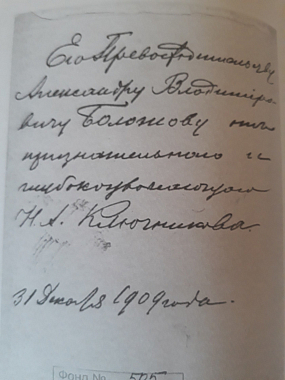 Его Превосходительству
Александру Владиміро-
вичу Болотову отъ
признательнаго и
глубокоуважающаго
Н. А. Ключникова.
31 Декабря 1909 года.
Фонд № 595